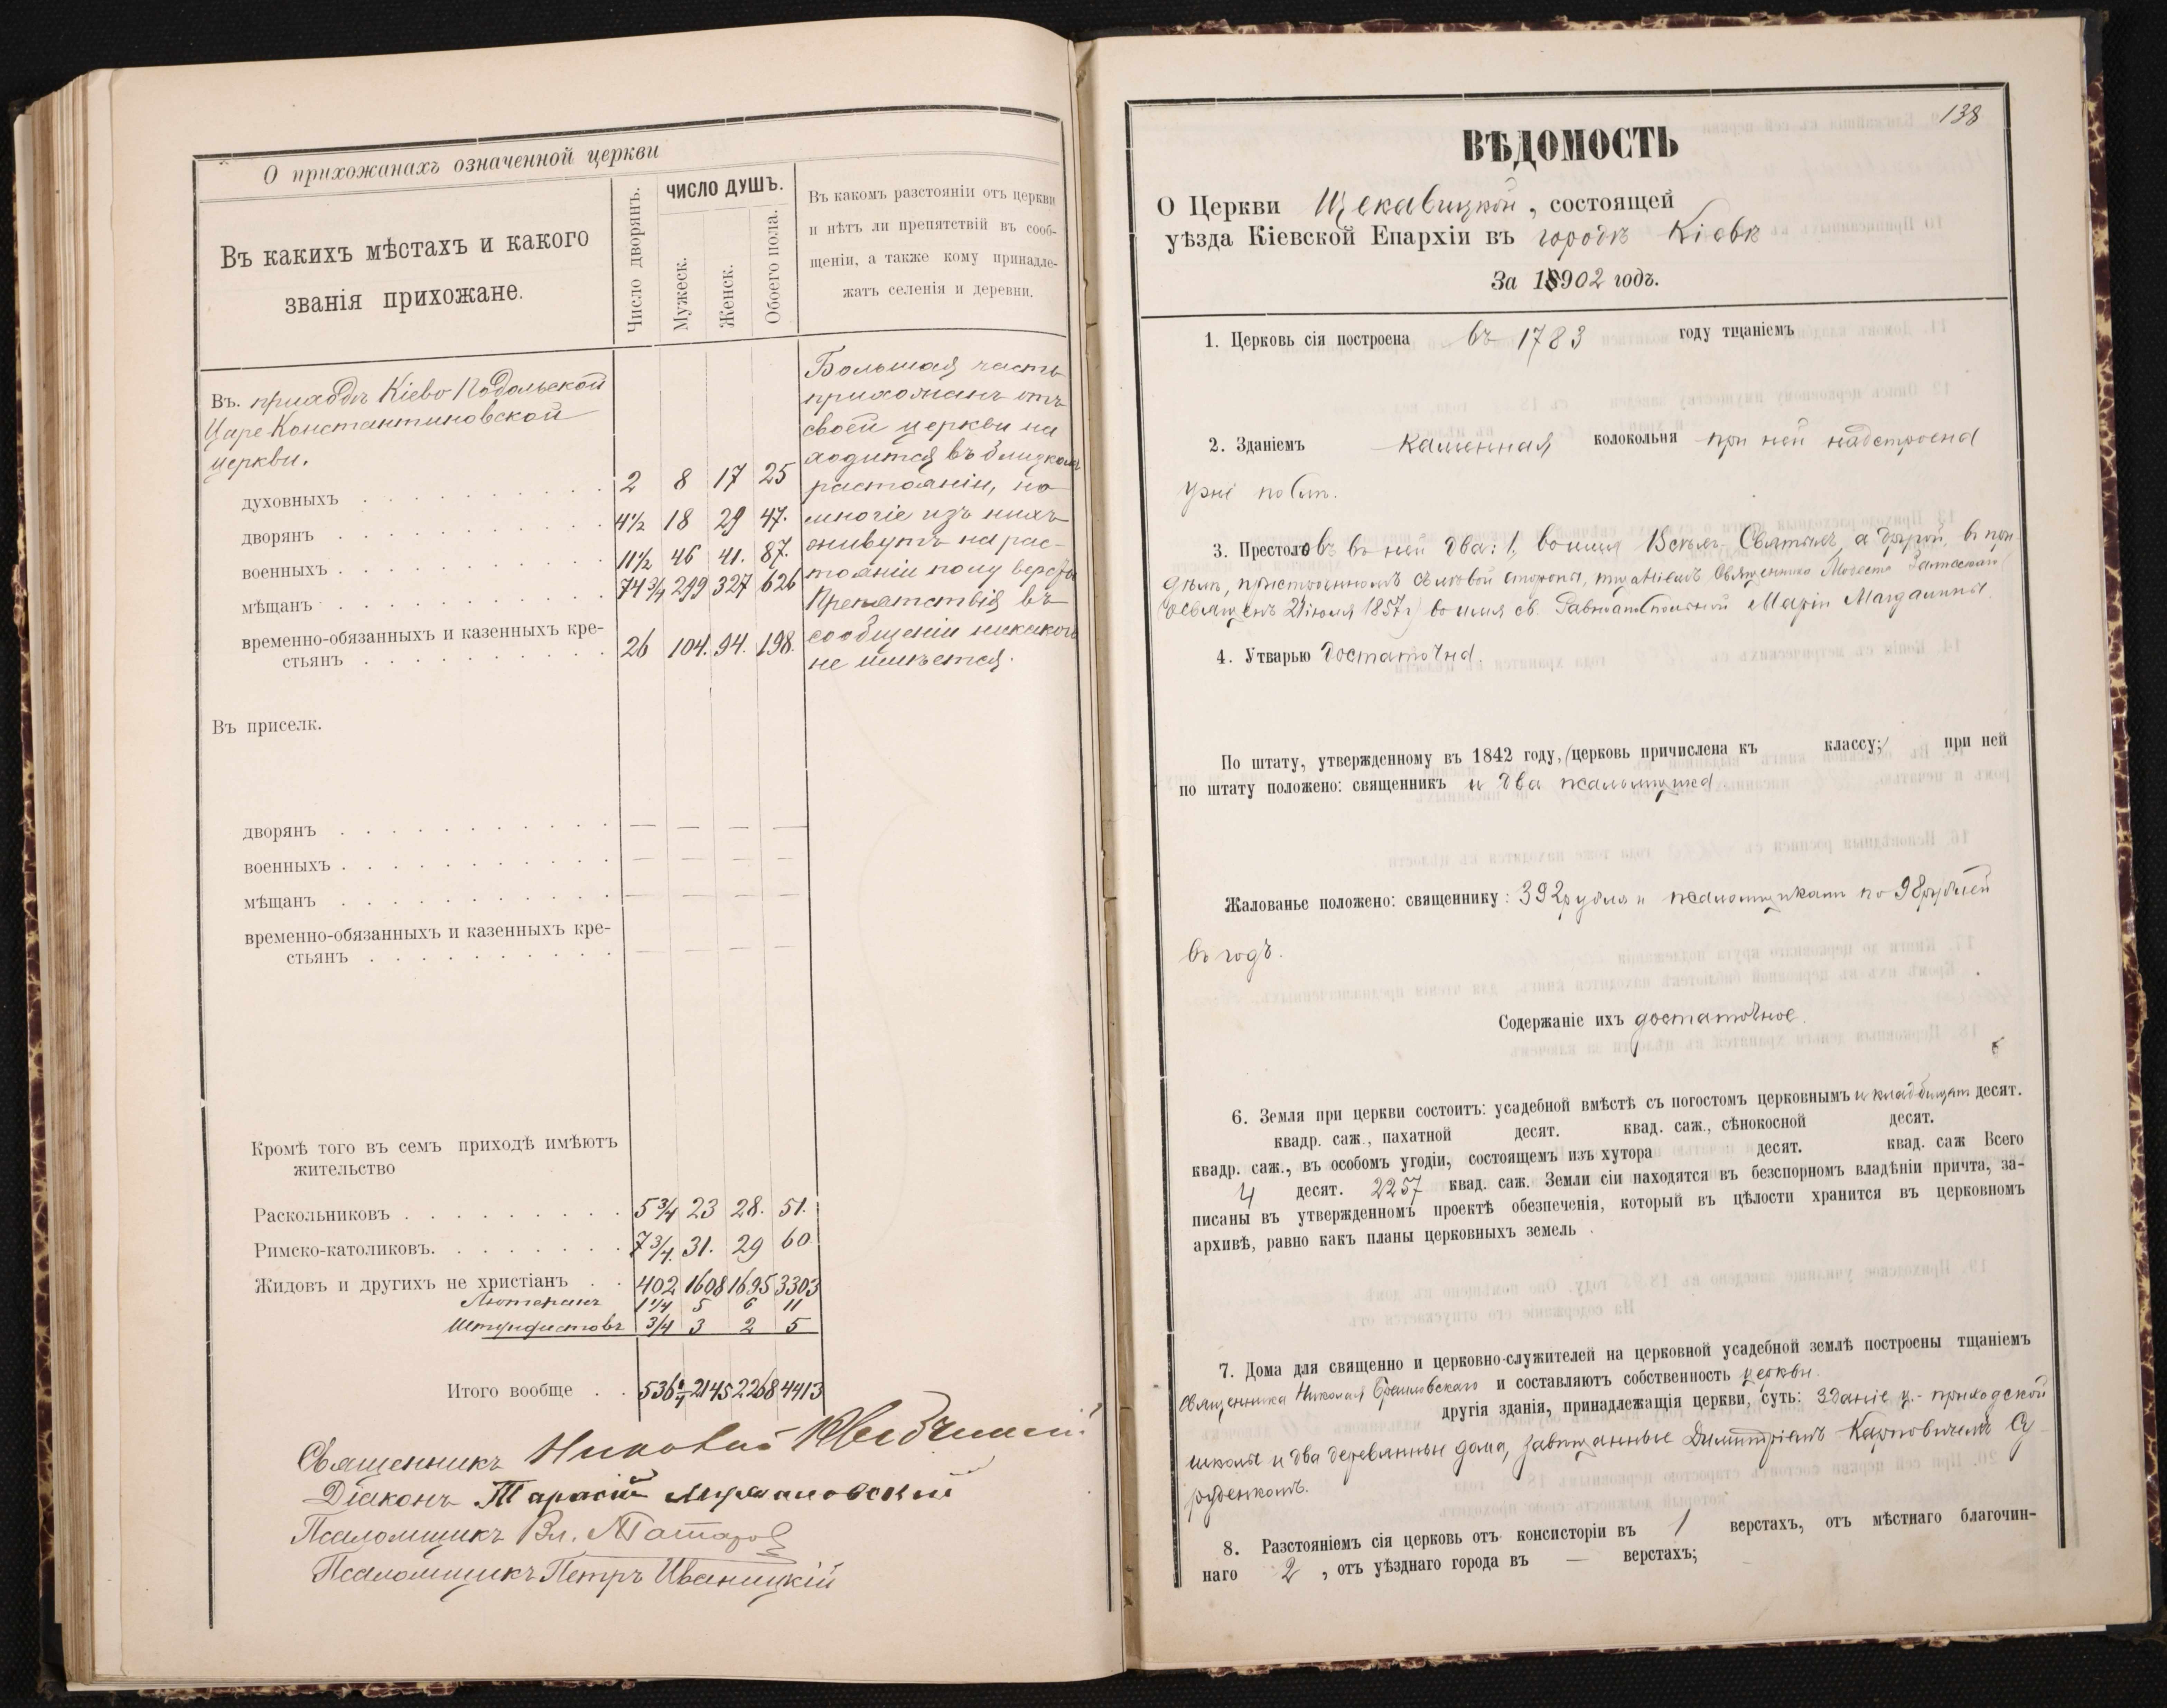 О прихожанахъ означенной церкви
Въ какихъ мѣстахъ и какого
званія прихожане.
Число дворянъ.
ЧИСЛО ДУШЪ.
Мужеск.
Женск.
Обоего пола.
Въ какомъ разстояніи отъ церкви
и нѣтъ ли препятствій въ сооб-
щеніи, а также кому принадле-
жатъ селенія и деревни.
Въ. приходѣ Кіево-Подольской
Царе-Константиновской
церкви.
духовныхъ 2 8 17 25
дворянъ 4½ 18 29 47.
военныхъ 11½ 46 41. 87.
мѣщанъ 74¾ 299 327 626
временно-обязанныхъ и казенныхъ кре-
стьянъ 26 104. 94. 198.
Большая часть
прихожанъ отъ
своей церкви на
ходится въ близкомъ
растояніи, но
многіе изъ нихъ
живутъ на рас-
тояніи полу версты
Препятствія въ
сообщеніи никакого
не имѣется.
Въ приселк.
дворянъ — — — —
военныхъ — — — —
мѣщанъ — — — —
временно-обязанныхъ и казенныхъ кре-
стьянъ — — — —
Кромѣ того въ семъ приходѣ имѣютъ
жительство
Раскольниковъ 5¾ 23 28. 51.
Римско-католиковъ. 7¾. 31. 29 60
Жидовъ и другихъ не христіанъ 402 1608 1695 3303
Лютеранъ 1¼ 5 6 11
Штундистовъ ¾ 3 2 5
Итого вообще 536 2145 2268 4413
Священникъ Николай
Діаконъ Тарасій
Псаломщикъ Вл.
Псаломщикъ Петръ Иваницкій
138
ВѢДОМОСТЬ
О Церкви Щекавицкой, состоящей
уѣзда Кіевской Епархіи въ городѣ Кіевѣ
За 1902 годъ.
1. Церковь сія построена въ 1783 году тщаніемъ
2. Зданіемъ каменная колокольня при ней надстроена
3. Престоловъ въ ней два: 1, во имя Всѣхъ Святыхъ, а другой, въ при-
дѣлѣ, пристроенномъ съ лѣвой стороны, тщаніемъ Священника
(освященъ 21 іюля 1857 г) во имя св. Равноапостольной Маріи Магдалины.
4. Утварью достаточна
По штату, утвержденному въ 1842 году, (церковь причислена къ классу;) при ней
по штату положено: священникъ и два псаломщика
Жалованье положено: священнику: 392 рубля и псаломщикамъ по 98 рублей
въ годъ.
Содержаніе ихъ достаточное.
6. Земля при церкви состоитъ: усадебной вмѣстѣ съ погостомъ церковнымъ и кладбищемъ десят.
квадр. саж., пахатной десят. квад. саж., сѣнокосной десят.
квадр. саж., въ особомъ угодіи, состоящемъ изъ хутора десят. квад. саж Всего
4 десят. 2257 квад. саж. Земли сіи находятся въ безспорномъ владѣніи причта, за-
писаны въ утвержденномъ проектѣ обезпеченія, который въ цѣлости хранится въ церковномъ
архивѣ, равно какъ планы церковныхъ земель
7. Дома для священно и церковно-служителей на церковной усадебной землѣ построены тщаніемъ
Священника Николая и составляютъ собственность церкви.
другія зданія, принадлежащія церкви, суть: зданіе ц.-приходской
школы и два деревянные дома, завѣщанные Димитріемъ Карповичемъ Су-
руденкомъ.
8. Разстояніемъ сія церковь отъ консисторіи въ 1 верстахъ, отъ мѣстнаго благочин-
наго 2, отъ уѣзднаго города въ — верстахъ;